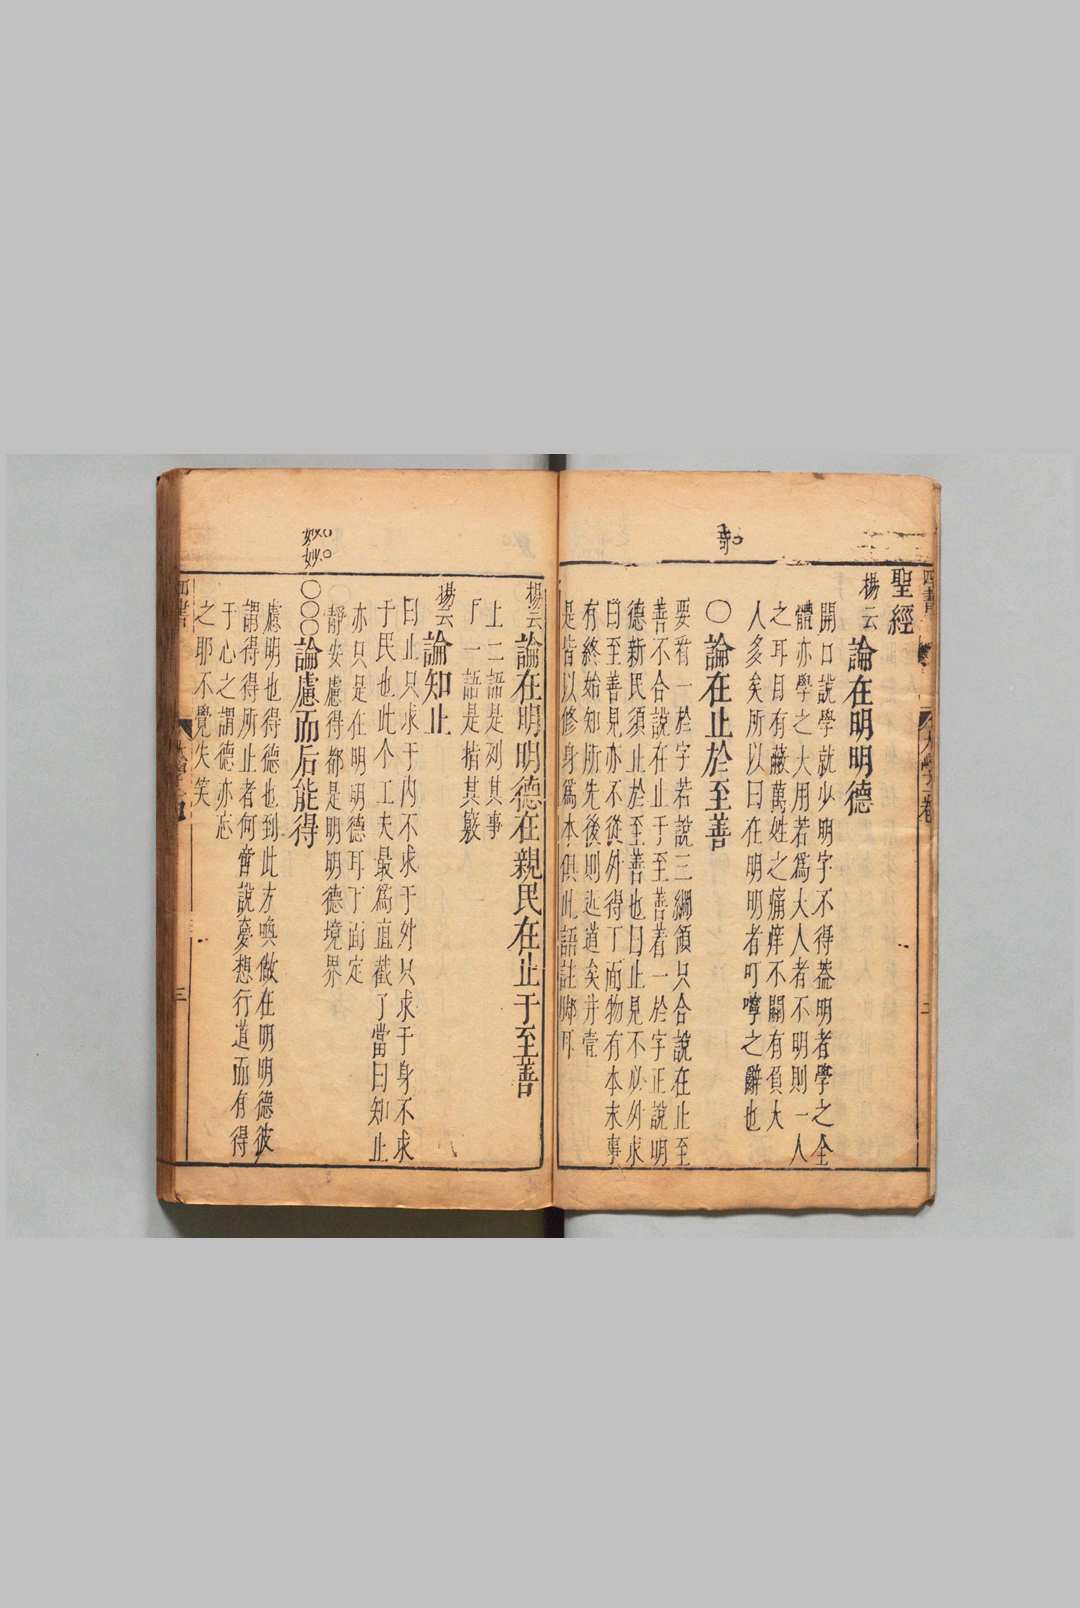 聖經
楊云論在明明德
開口說學就少明字不得葢明者學之全
體亦學之大用若爲大人者不明則一人
之耳目有蔽萬姓之痛痒不關有負大
人多矣所以曰在明明者叮嚀之辭也
○論在止於至善
要看一於字若說三綱領只合說在止至
善不合說在止于至善着一於字正說明
德新民須止於至善也曰止見不必外求
曰至善見亦不從外得了而物有本末事
有終始知所先後則近道矣并壹
是皆以修身爲本俱此語註脚耳
楊云論在明明德在親民在止于至善
上二語是列其事
下一語是指其竅
楊云論知止
曰止只求于内不求于外只求于身不求
于民也此个工夫最爲直截了當曰知止
亦只是在明明德耳下面定
靜安慮得都是明明德境界
妙妙
○○○論慮而后能得
慮明也得德也到此方喚做在明明德彼
謂得得所止者何嘗說夢想行道而有得
于心之謂德亦忘
之耶不覺失笑
四書
三
二